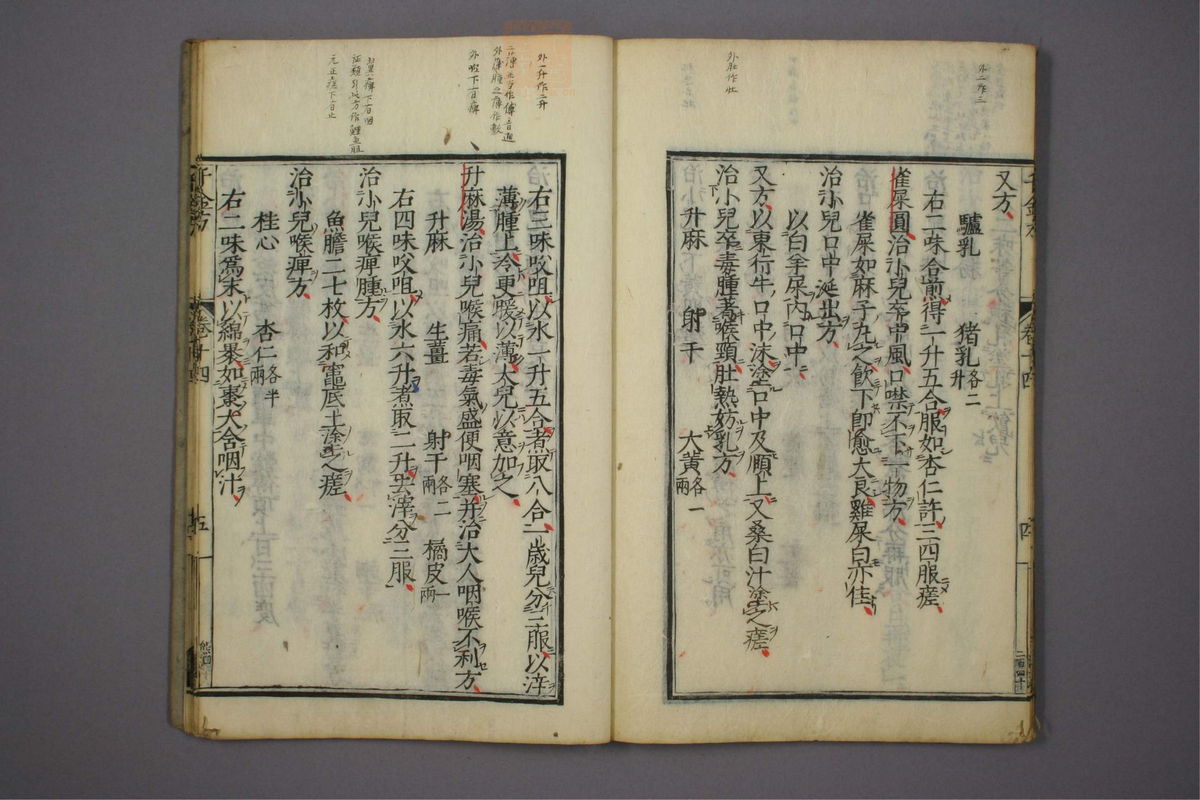 外二作三
又方
驢乳 猪乳各二升
右二味合煎得一升五合服如杏仁許三四服瘥
雀屎圓治小兒卒中風口噤不下一物方
雀屎如麻子丸之飲下卽愈大良雞屎白亦佳
治小兒口中涎出方
以白羊屎内口中
又方以東行牛口中沫塗口中及頤上又桑白汁塗之瘥
治小兒卒毒腫著喉頸壯熱妨乳方
升麻 射干 大黃各一兩
卷十四
四
外一升作二升
右三味㕮咀以水一升五合煮取八合一歲兒分三服以滓
薄腫上冷更暖以薄大兒以意加之
升麻湯治小兒喉痛若毒氣盛便咽塞并治大人咽喉不利方
升麻 生薑 射干各二兩 橘皮一兩
右四味㕮咀以水六升煮取二升去滓分三服
治小兒喉痹腫方
魚膽二七枚以和竈底土塗之瘥
治小兒喉痹方
桂心 杏仁各半兩
右二味爲末以綿裹如棗大含咽汁
千金方
卷十四
五